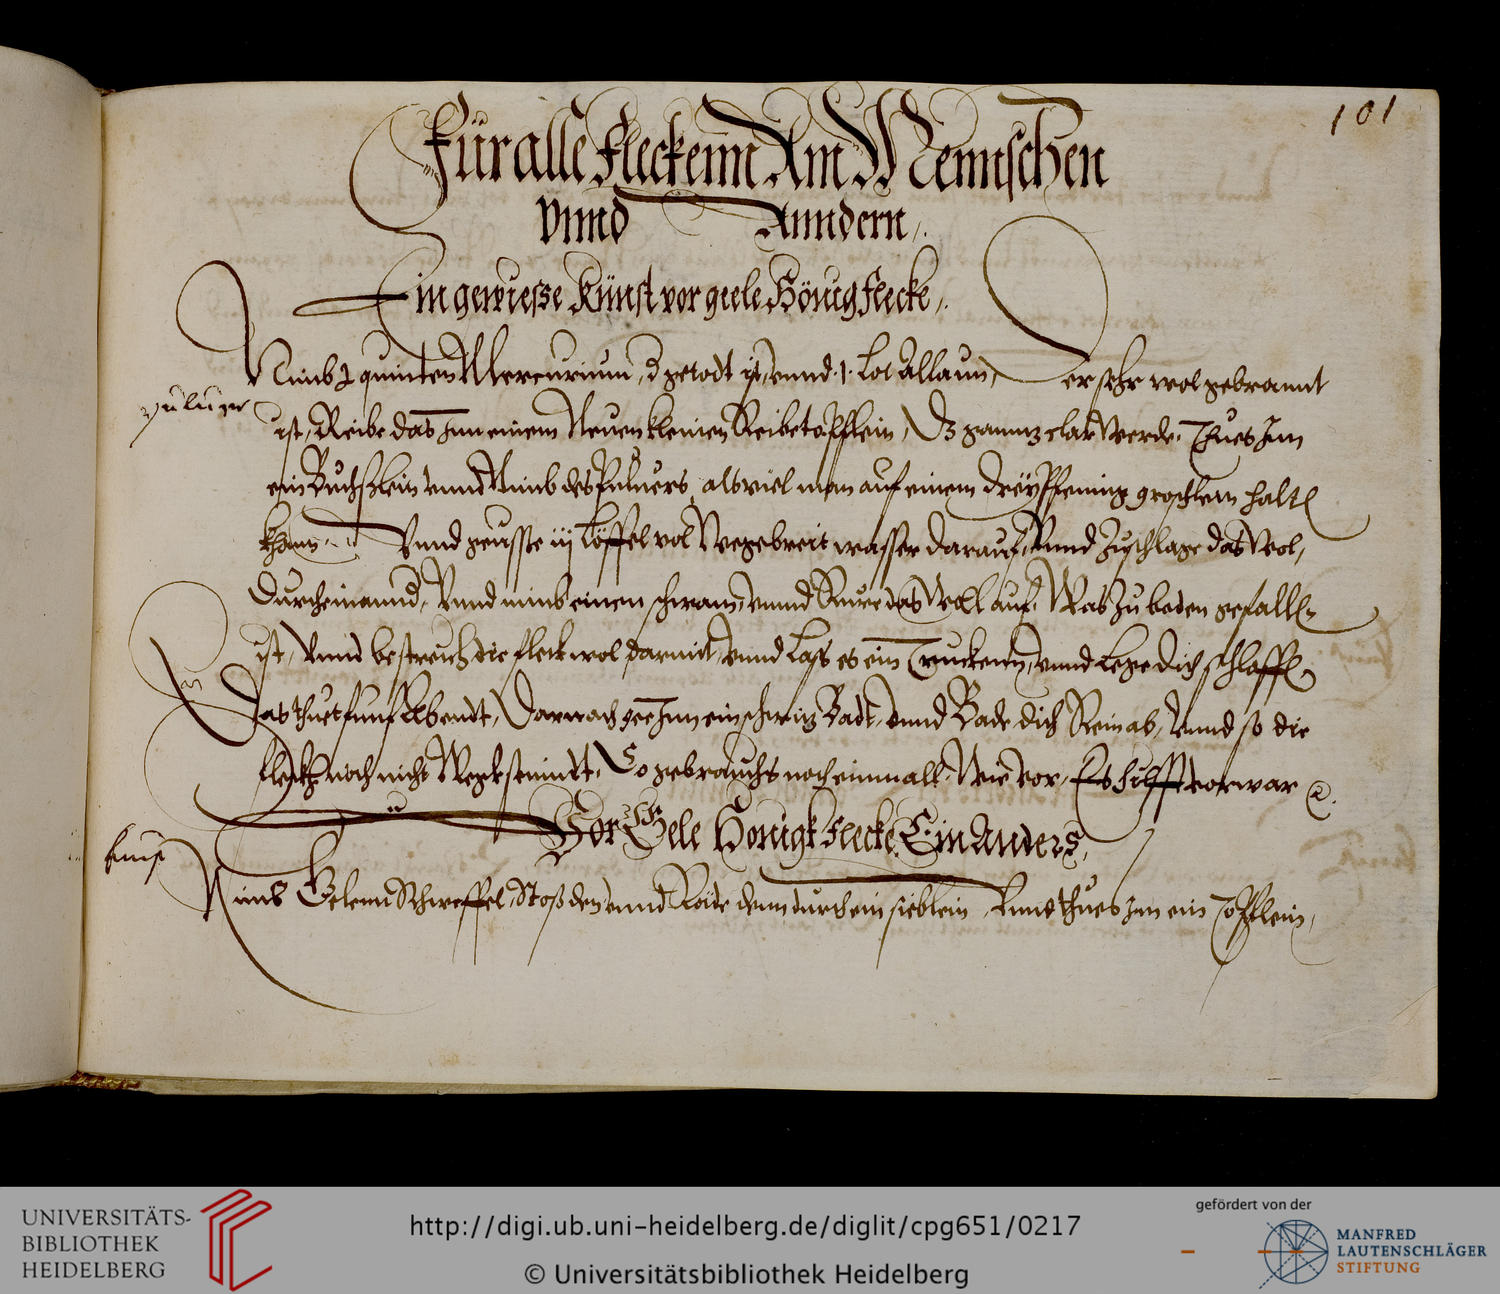 101
Für alle Fleckenn Am Mennschen
Vnnd Anndern /.
Ein gewiesse Künst vor geele Hönig flecke /.
Nimb 2 quinten Mercurium, d getodt ist, vnnd .1. Lot Allaun, er sehr wol gebrannt
ist, Reibe das Inn einem Neuen kleinen Reibetopfflein, Dz gannz clar werde. Thues Inn
ein Buchslein vnnd Nimb des Puluers, als viel man auf einem dreÿ Pfening groschlein halten
khann. Vnnd geusse iij Löffel vol Wegebreit wasser darauf, Vnnd Zuschlage das Wol,
durcheinannd, Vnnd nimb einen schwam, vnnd Rure das Woll auf. Was zu boden gefallen
ist, Vnnd bestreich die fleck wol darmit, vnnd Lass es ein Truckenn, vnnd Lege dich schlaffen
Das thue funf Abendt, Darnach gee Inn ein schwiz Badt, vnnd Bade dich Rein ab, Vnnd so die
fleckh noch nicht Wegk seindt, So gebrauchs noch einmall, Wie vor, Es hilfft vorwar
Vor Geele Honigk flecke, Ein Anders,
Nimb Gelenn Schweffel, Stoß den, vnnd Räde denn durch ein sieblein, Vnnd thues Inn ein Topfflein,
UNIVERSITÄTS-
BIBLIOTHEK
HEIDELBERG
http://digi.ub.uni-heidelberg.de/diglit/cpg651/0217
© Universitätsbibliothek Heidelberg
gefördert von der
MANFRED
LAUTENSCHLÄGER
STIFTUNG